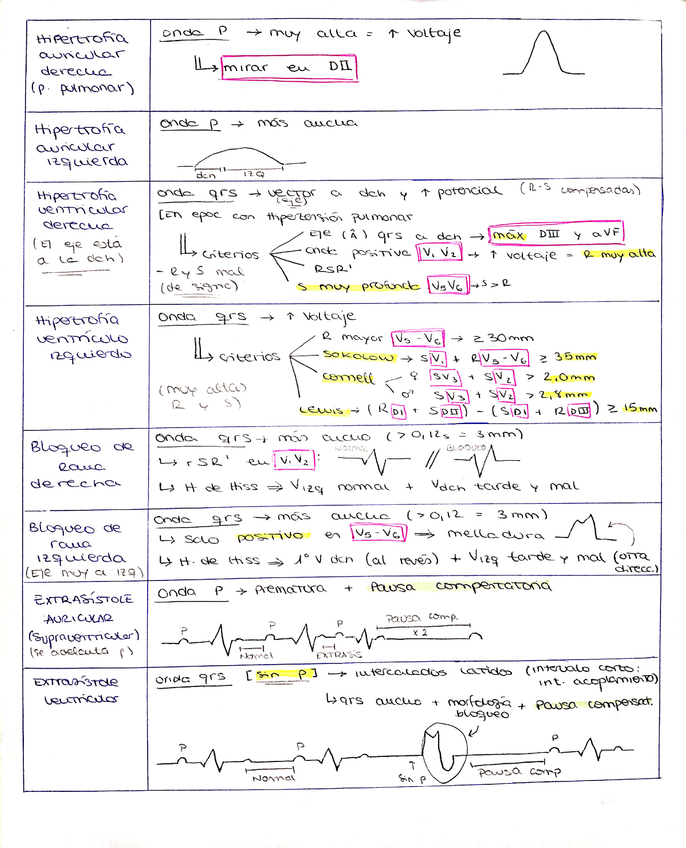 Hipertrofía
auricular
derecha
(p. pulmonar)
onda P → muy alta = ↑ Voltaje
↳ mirar en DII
Hipertrofía
auricular
izquierda
onda p → más ancha
dch IZQ
Hipertrofía
ventricular
derecha
(El eje está
a la dch)
onda qrs → vector a dch y ↑ potencial (R-S compensadas)
(eje)
[En epoc con Hipertensión pulmonar
↳ criterios
- R y S mal
(de signo)
Eje (Â) qrs a dch → máx DIII y aVF
onda positiva V1 V2 → ↑ voltaje = R muy alta
RSR'
S muy profunda V5 V6 → S > R
Hipertrofía
Ventrículo
Izquierdo
Onda qrs → ↑ Voltaje
↳ criterios
(muy altas
R y S)
R mayor V5-V6 → ≥ 30mm
SOKOLOW → SV1 + RV5-V6 ≥ 35mm
Cornell ♀ SV3 + SV2 > 2,0mm
♂ SV3 + SV2 > 2,8mm
Lewis → (R DI + S DIII) - (S DI + R DIII) ≥ 15mm
Bloqueo de
rama
derecha
Onda qrs → más ancho (> 0,12s = 3mm)
↳ rSR' en V1 V2: NORMAL // BLOQUEO
↳ H de Hiss ⇒ Vizq normal + Vdch tarde y mal
Bloqueo de
rama
izquierda
(Eje muy a IZQ)
Onda qrs → más ancha (> 0,12 = 3mm)
↳ Solo positivo en V5-V6 → melladura
↳ H. de Hiss ⇒ 1º V dch (al revés) + Vizq tarde y mal (otra
direcc.)
EXTRASÍSTOLE
AURICULAR
(supraventricular)
(se adelanta p)
Onda P → Prematura + Pausa compensatoria
P P P Pausa comp.
x 2
Normal EXTRASIS
Extrasístole
ventricular
onda qrs [sin P] → intercalados latidos (intervalo corto:
int. acoplamiento)
↳ qrs ancho + morfología + Pausa compensat.
bloqueo
P P P
Normal sin P Pausa comp